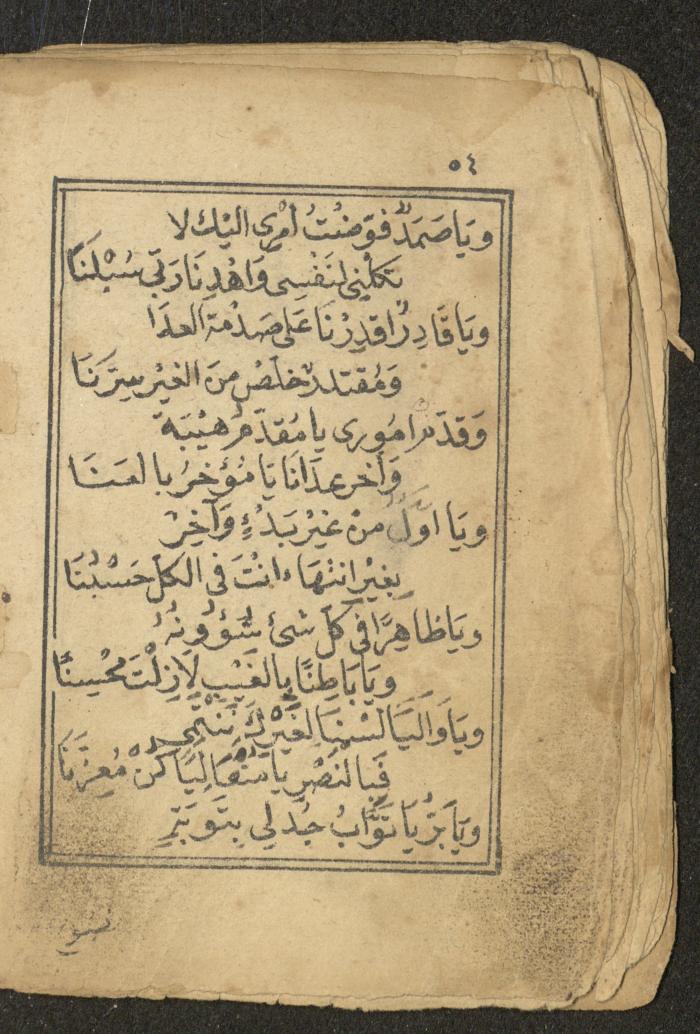 ٥٤
وَيَا صَمَدٌ فَوَّضْتُ أَمْرِى اِلَيْكَ لَا
تَكِلْنِى لِنَفْسِى وَاهْدِنَا رَبِّى سُبْلَنَا
وَيَا قَادِرًا اَقْدِرْنَا عَلَى صَدْمَةِ العِدَا
وَمُقْتَدِرٌ خَلِّصْ مِنَ الغَيْرِ سِرَّنَا
وَقَدِّمْ اُمُورِى يَا مُقَدِّمُ هَيْبَةً
وَأَخِّرْ عِدَانَا يَا مُؤَخِّرُ بِالعَنَا
وَيَا اَوَّلُ مِنْ غَيْرِ بَدْءٍ وَآخِرُ
بِغَيْرِ انْتِهَاءٍ اَنْتَ فِى الكُلِّ حَسْبُنَا
وَيَا ظَاهِرًا فِى كُلِّ شَىْءٍ شُؤُونُهُ
وَيَا بَاطِنًا بِالغَيْبِ لَا زِلْتَ مُحْسِنًا
وَيَا وَالِيًا لَسْنَا لِغَيْرِكَ نَنْتَمِى
فَبِالنَّصْرِ يَا مُتَعَالِيًا كُنْ مُعِزَّنَا
وَيَا بَرُّ يَا تَوَّابُ جُدْ لِى بِتَوْبَةٍ